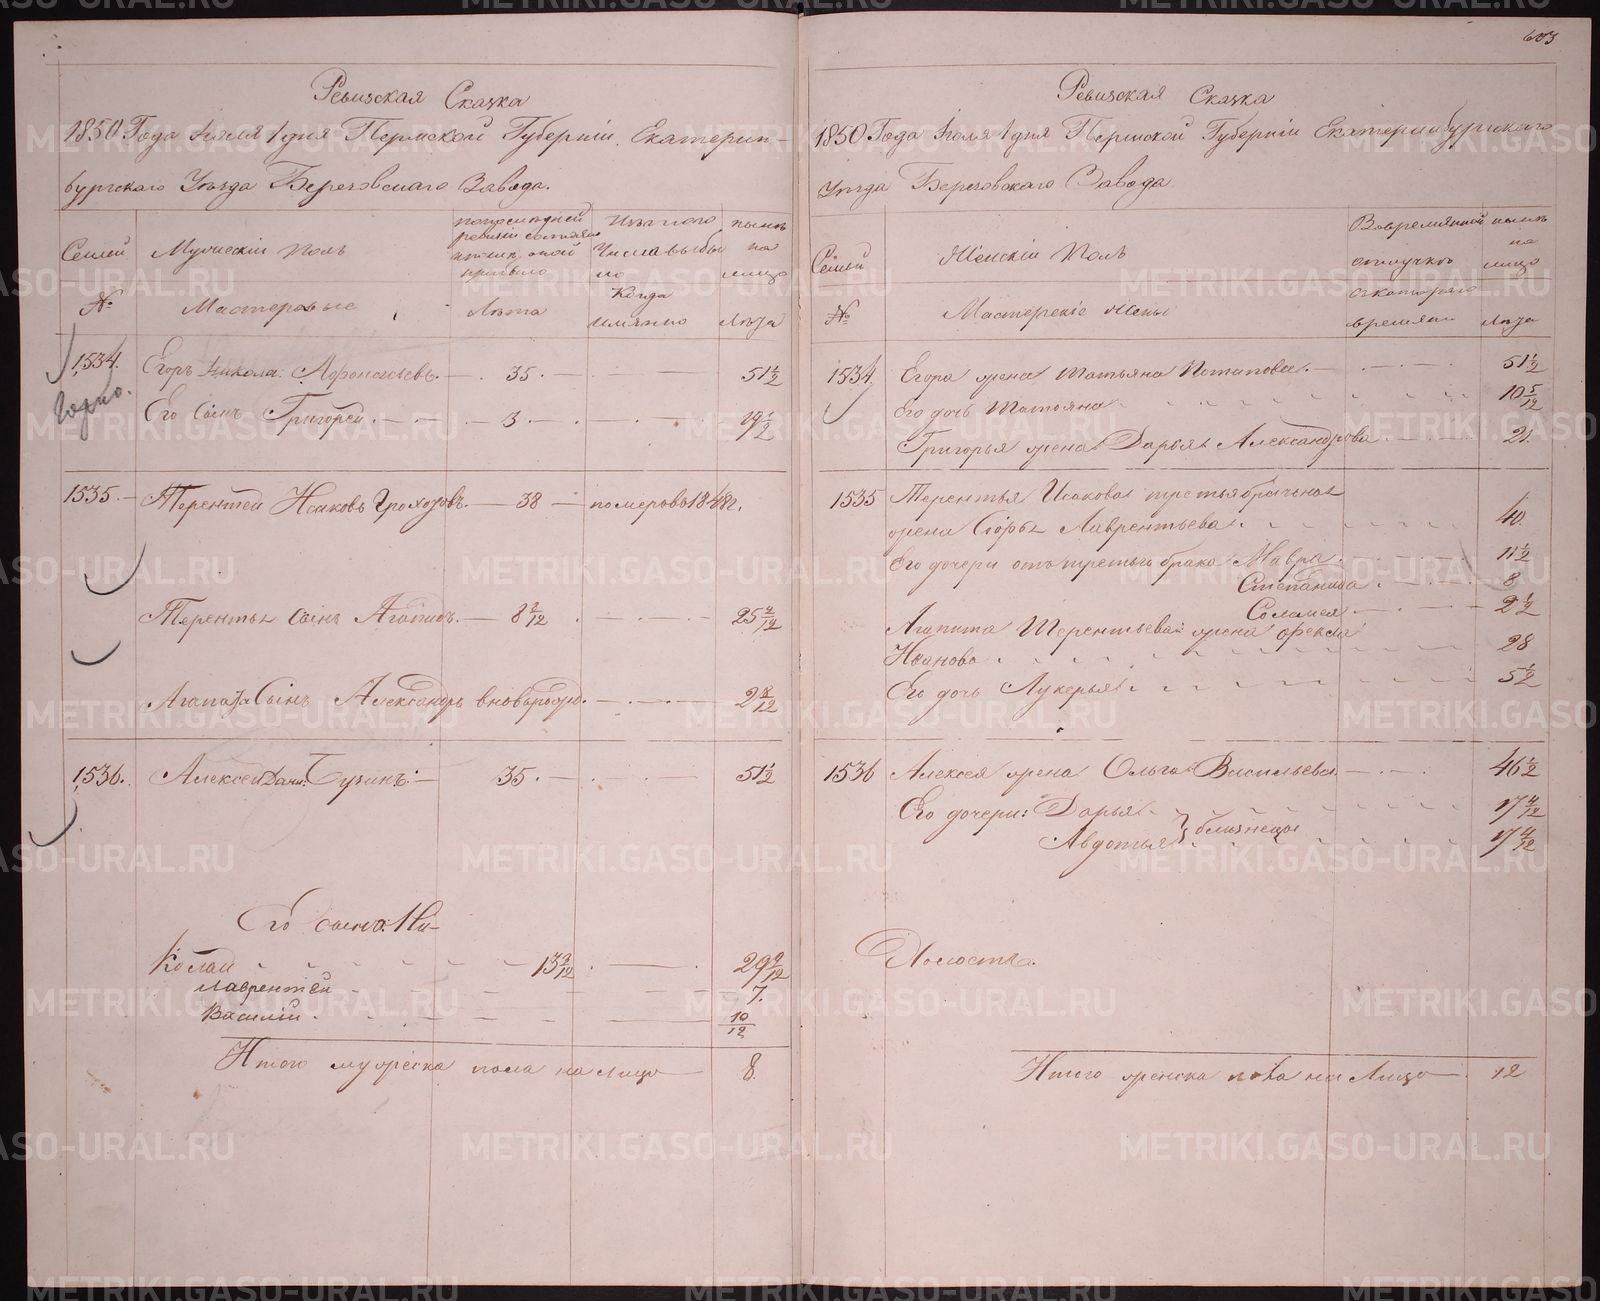 603
Ревизская Сказка
1850 Года Іюля 1 дня Пермской Губерніи Екатерин-
бургскаго Уѣзда Березовскаго Завода.
Семей
Мужескій Полъ
по последней
ревизіи состояло
и после оной
прибыло
Изъ того
Числа выбы
ло
нынѣ
на
лицо
№
Мастеровые
Лѣта
Когда
имянно
Лѣта
1534. Егоръ Никола: Афонасьевъ. 35. 51 1/2
Годно.
Его Сынъ Григорей. 3. 19 1/2
1535. Терентей Исаковъ Грохотовъ. 38 померъ въ 1848 г.
Терентья Сынъ Агапитъ. 8 2/12 25 4/12
Агапита Сынъ Александръ вновьрожд. 2 8/12
1536. Алексей Дани: Бузинъ: 35. 51 1/2
Его сынъ: Ни-
колай 13 2/12 29 4/12
Лаврентей 7.
Василій 10/12
Итого мужеска пола на лицо 8.
Ревизская Сказка
1850 Года Іюля 1 дня Пермской Губерніи Екатеринбургскаго
Уѣзда Березовскаго Завода
Семей
Женскій Полъ
Вовремянной
отлучкѣ
нынѣ
на
лицо
№
Мастерскіе Жены
съ котораго
времяни
Лѣта
1534. Егора жена Татьяна Потапова. 51 1/2
Его дочь Татьяна 10 5/12
Григорья жена Дарья Александрова 21.
1535 Терентья Исакова третьябрачная
жена Софья Лаврентьева. 40.
Его дочери отъ третьяго брака Мавра. 11 1/2
Степанида. 8
Соломея. 2 1/2
Агапита Терентьева жена Фекла
Иванова. 28
Его дочь Лукерья. 5 1/2
1536 Алексея жена Ольга Васильева. 46 1/2
Его дочери: Дарья 17 4/12
Авдотья } близнецы 17 4/12
Холоста.
Итого женска пола на лицо 12
METRIKI.GASO-URAL.RU